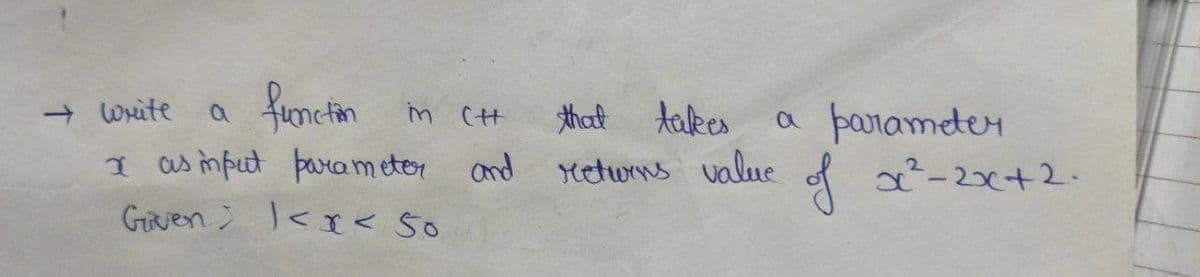 → write a functin in C++ that takes a parameter
x as input parameter and returns value of x²-2x+2.
Given; 1<x< 50